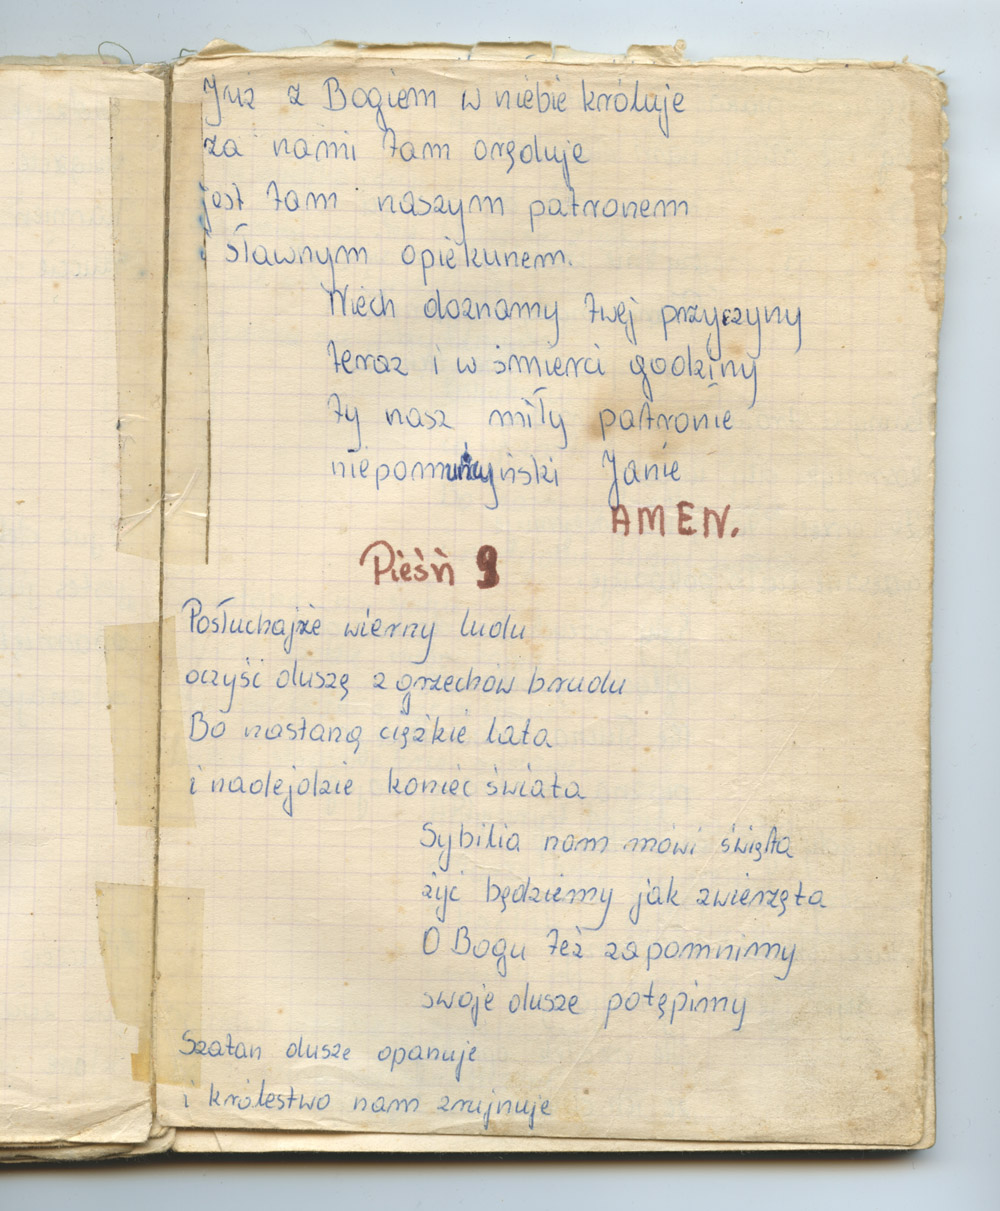 Już z Bogiem w niebie króluje
za nami tam oręduje
jest tam naszym patronem
i sławnym opiekunem.
Niech doznamy twej przyczyny
teraz i w śmierci godziny
ty nasz miły patronie
niepomucyński Janie
AMEN.
Pieśń 9
Posłuchajże wierny ludu
oczyść duszę z grzechów brudu
Bo nastaną ciężkie lata
i nadejdzie koniec świata
Sybilia nam mówi święta
żyć będziemy jak zwierzęta
O Bogu też zapomnimy
swoje dusze potępimy
Szatan dusze opanuje
i królestwo nam zrujnuje